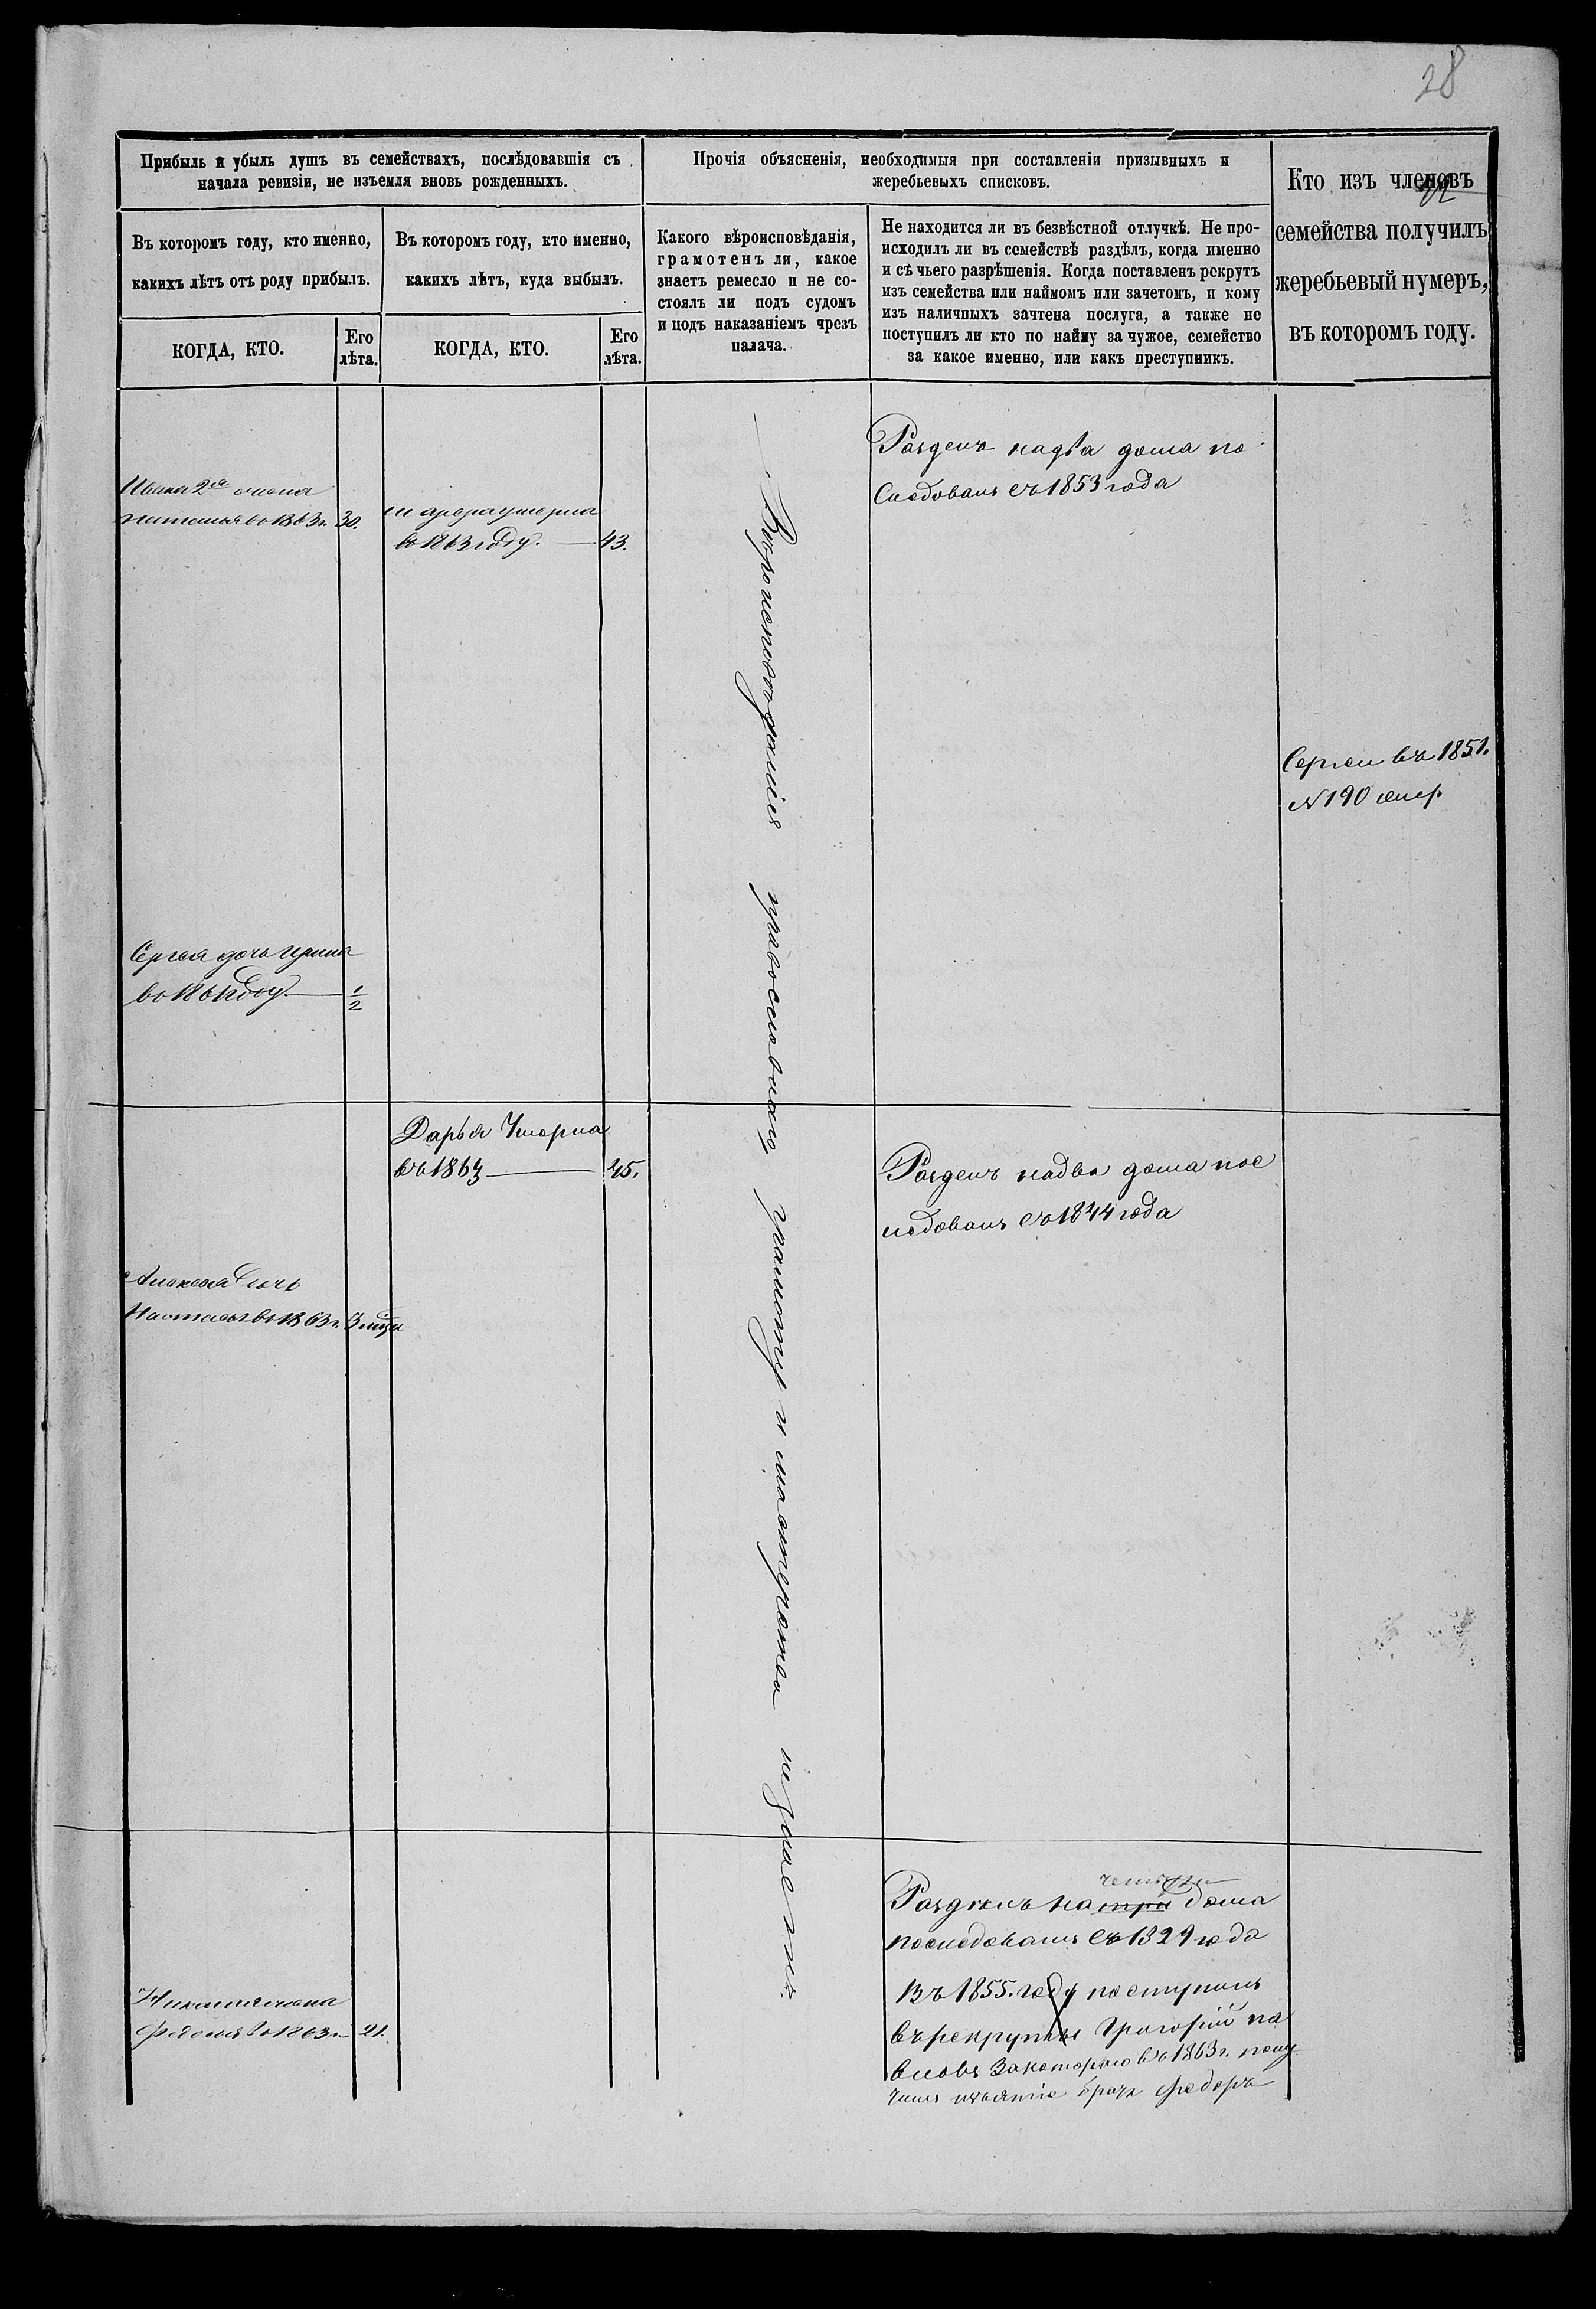 28
22
Прибыль и убыль душъ въ семействахъ, послѣдовавшія съ
начала ревизіи, не изъемля вновь рожденныхъ.
Прочія объясненія, необходимыя при составленіи призывныхъ и
жеребьевыхъ списковъ.
Кто изъ членовъ
семейства получилъ
жеребьевый нумеръ,
въ которомъ году.
Въ которомъ году, кто именно,
какихъ лѣтъ отъ роду прибылъ.
Въ которомъ году, кто именно,
какихъ лѣтъ, куда выбылъ.
Какого вѣроисповѣданія,
грамотенъ ли, какое
знаетъ ремесло и не со-
стоялъ ли подъ судомъ
и подъ наказаніемъ чрезъ
палача.
Не находится ли въ безвѣстной отлучкѣ. Не про-
исходилъ ли въ семействѣ раздѣлъ, когда именно
и съ чьего разрѣшенія. Когда поставленъ рекрутъ
изъ семейства или наймомъ или зачетомъ, и кому
изъ наличныхъ зачтена послуга, а также не
поступилъ ли кто по найму за чужое, семейство
за какое именно, или какъ преступникъ.
КОГДА, КТО.
Его
лѣта.
КОГДА, КТО.
Его
лѣта.
Ивана 2го жена
Наталья въ 1863г. 30.
умерла
въ 1863 году. 43.
Разделъ на два дома по
следовалъ съ 1853 года
Вероисповѣданія православнаго грамоту и мастерства не знаетъ
Сергей въ 1851.
N 190
Сергея дочь Ирина
въ 1861 году 1/2
Дарья Умерла
въ 1863 45.
Разделъ на два дома пос
ледовалъ съ 1844 года
Алексея Сынъ
въ 1863г. 3 мѣца
Разделъ на три четыре дома
последовалъ съ 1829 года
Въ 1855. году поступилъ
въ рекруты Григорій Па
вловъ За котораго въ 1863г. полу
чилъ изъятіе братъ Федоръ
жена
Федосья въ 1863г. 21.